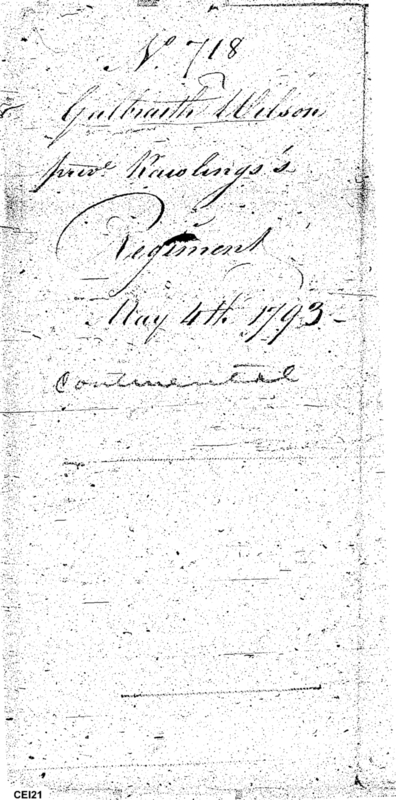 No. 718
Galbraith Wilson
priv.e Rawlings's
Regiment
May 4th 1793 -
Continental
CEI21